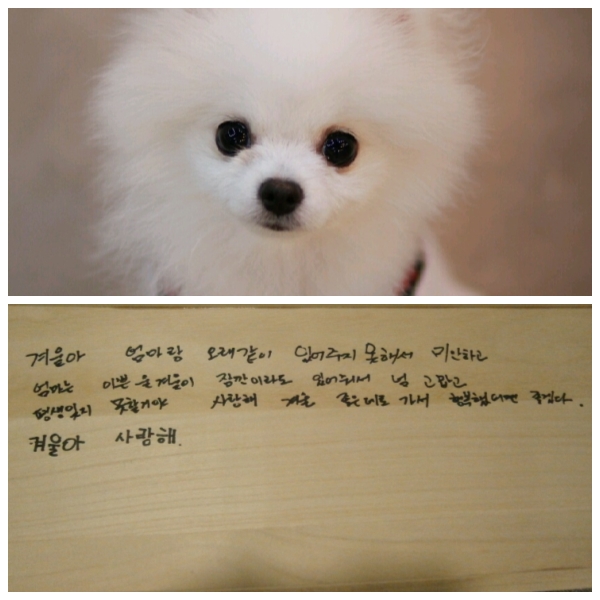 겨울아 엄마랑 오래같이 있어주지 못해서 미안하고
엄마는 이쁜 울 겨울이 잠깐이라도 있어줘서 넘 고맙고
평생잊지 못할거야 사랑해 겨울 좋은데로 가서 행복했다면 좋겠다.
겨울아 사랑해.